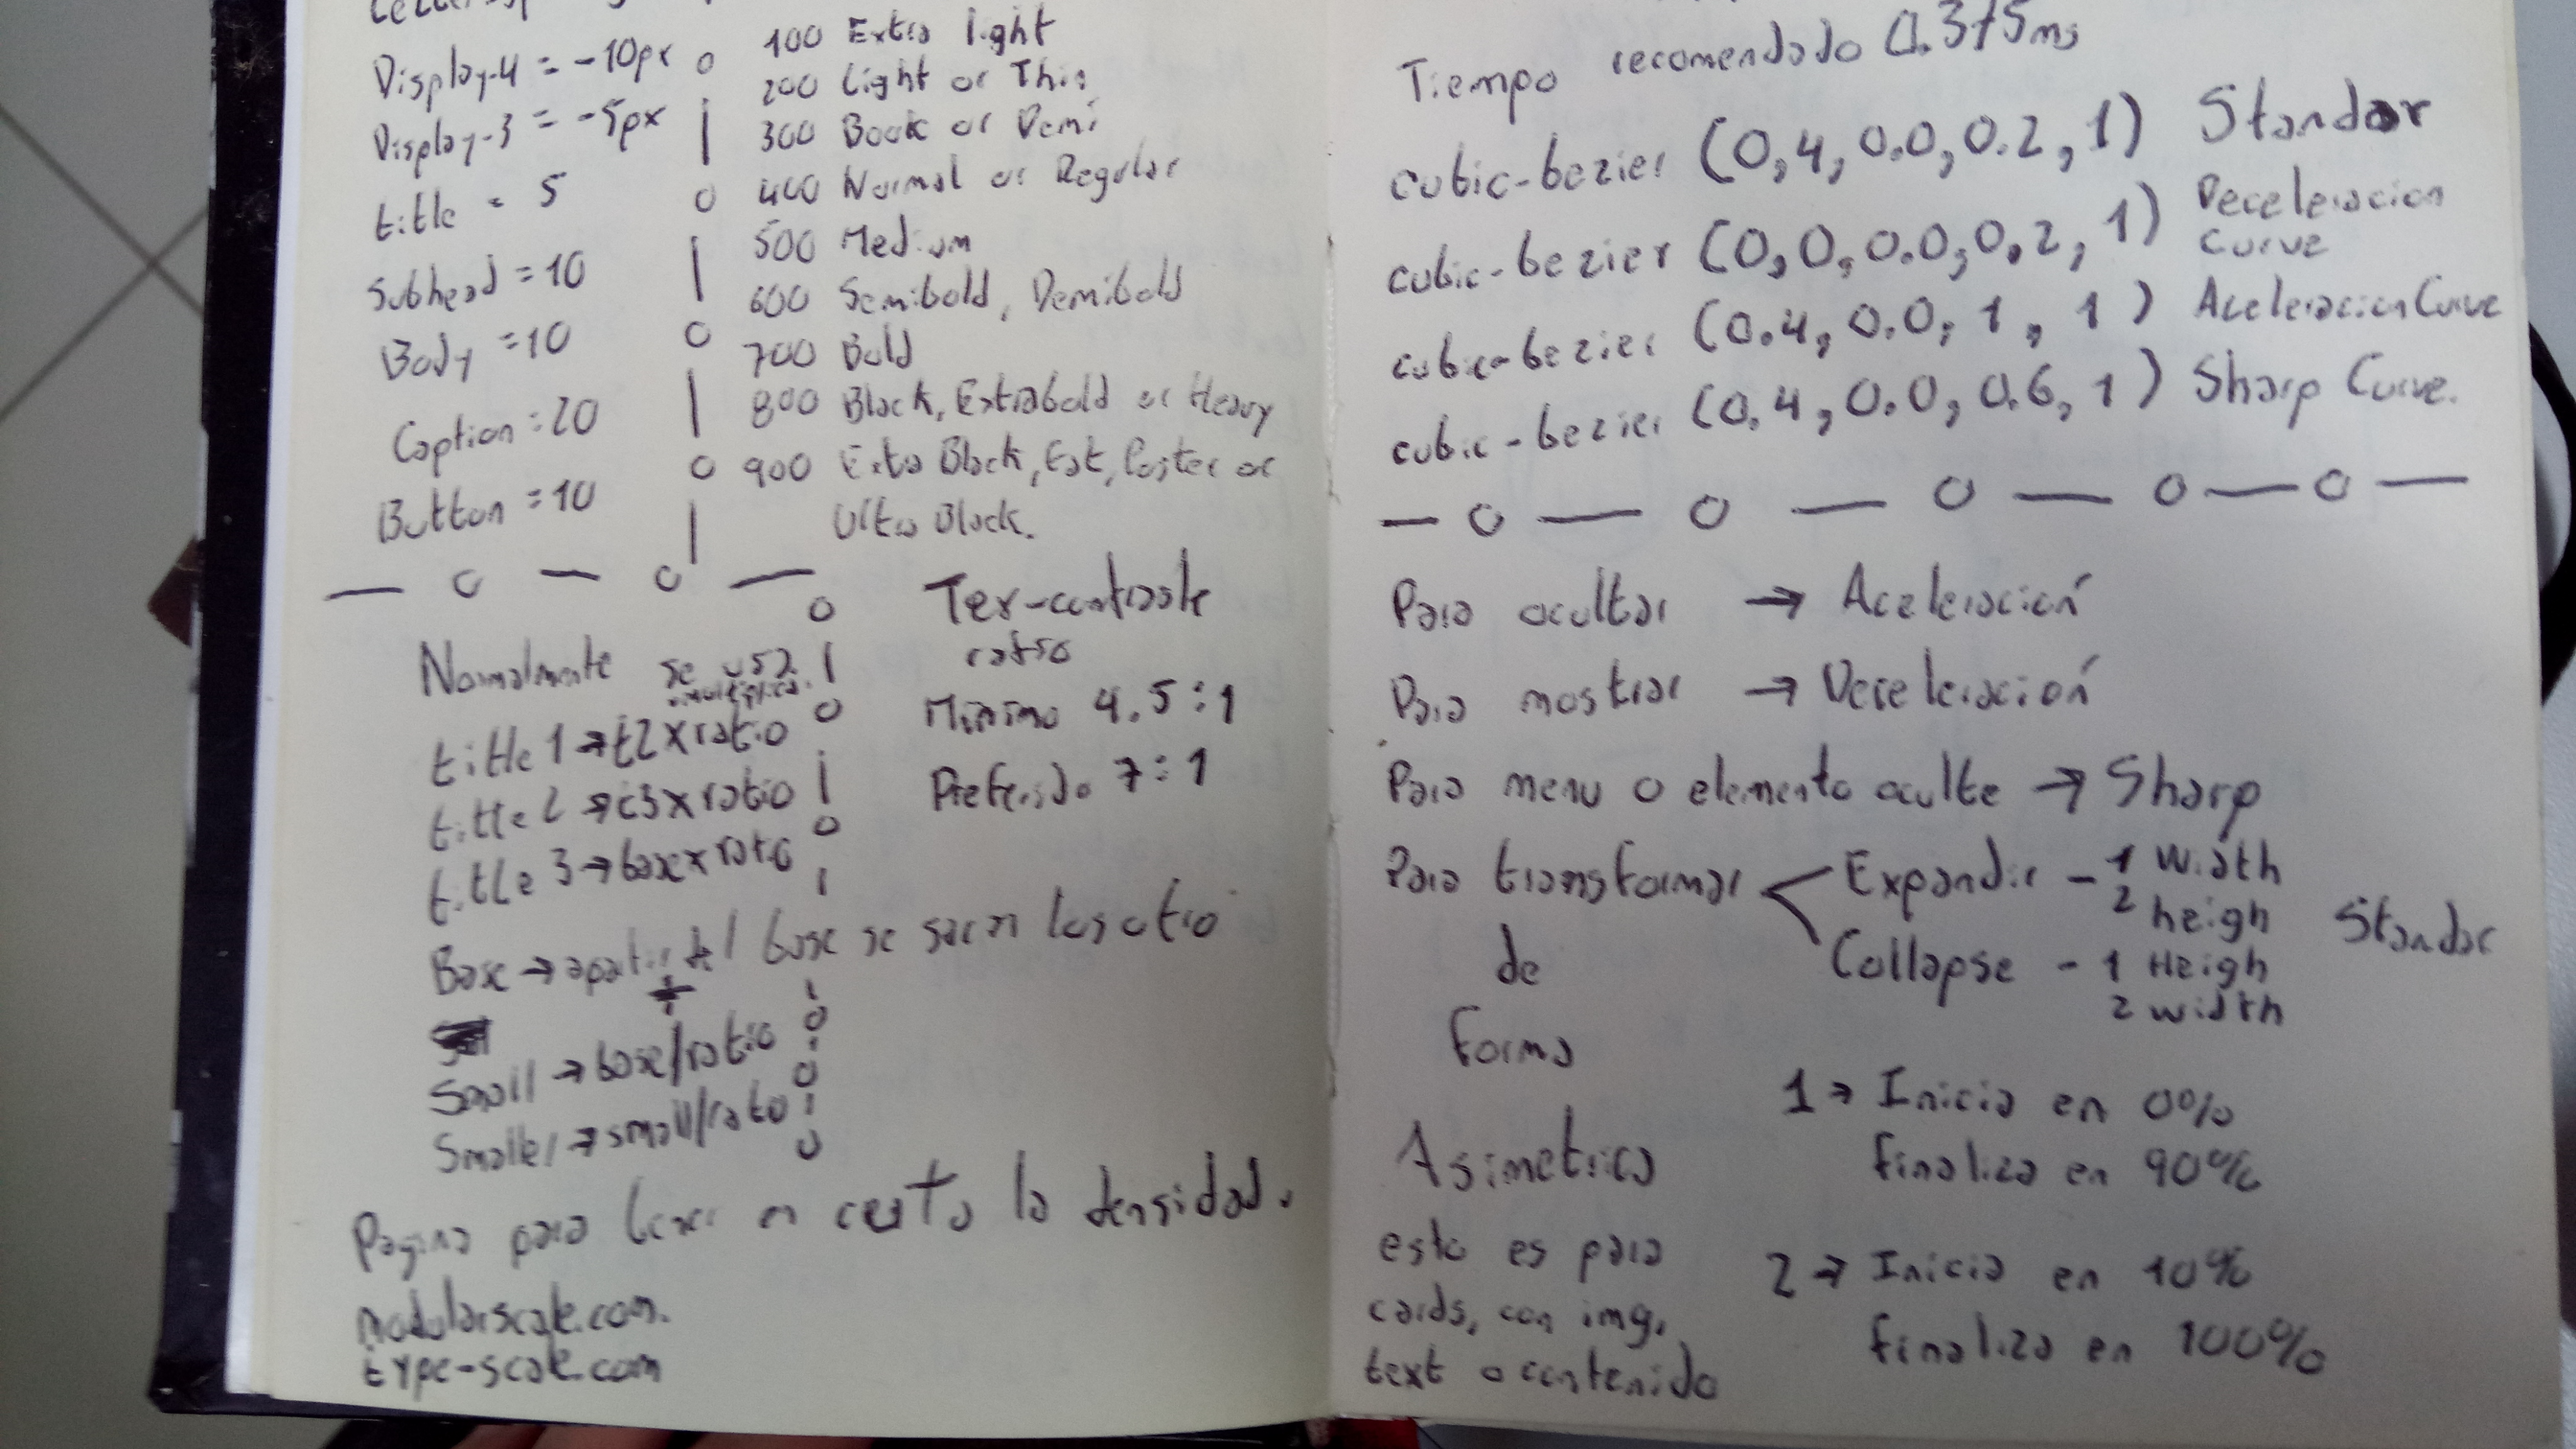 Display-4 = -10px
Display-3 = -5px
title = 5
Subhead = 10
Body = 10
Caption = 20
Button = 10
100 Extra light
200 Light or Thin
300 Book or Demi
400 Normal or Regular
500 Medium
600 Semibold, Demibold
700 Bold
800 Black, Extrabold or Heavy
900 Exta Black, Fat, Poster or
Ultra Black.
Normalmente se usa
multiplica.
title 1 → t2 x ratio
title 2 → t3 x ratio
title 3 → base x ratio
Base → apartir del base se sacan los otro
Small → base/ratio
Smaller → small/rato
Tex-contraste
ratio
Minimo 4.5:1
Preferido 7:1
Pagina para en la densidad.
modularscale.com.
type-scale.com
Tiempo recomendado 0.375ms
cubic-bezier (0,4,0.0,0.2,1) Standar
cubic-bezier (0,0,0.0,0,2,1) Deceleracion
Curve
cubic-bezier (0.4,0.0,1,1) Aceleracion Curve
cubic-bezier (0,4,0.0,0.6,1) Sharp Curve.
Para ocultar → Aceleración
Para mostrar → Deceleración
Para menu o elemento oculte → Sharp
Para transformar
de
forma
Expandir - 1 Width
2 heigh
Collapse - 1 Heigh
2 width
Standar
1 → Inicia en 0%
finaliza en 90%
Asimetrica
esto es para
cards, con img,
text o contenido
2 → Inicia en 10%
finaliza en 100%